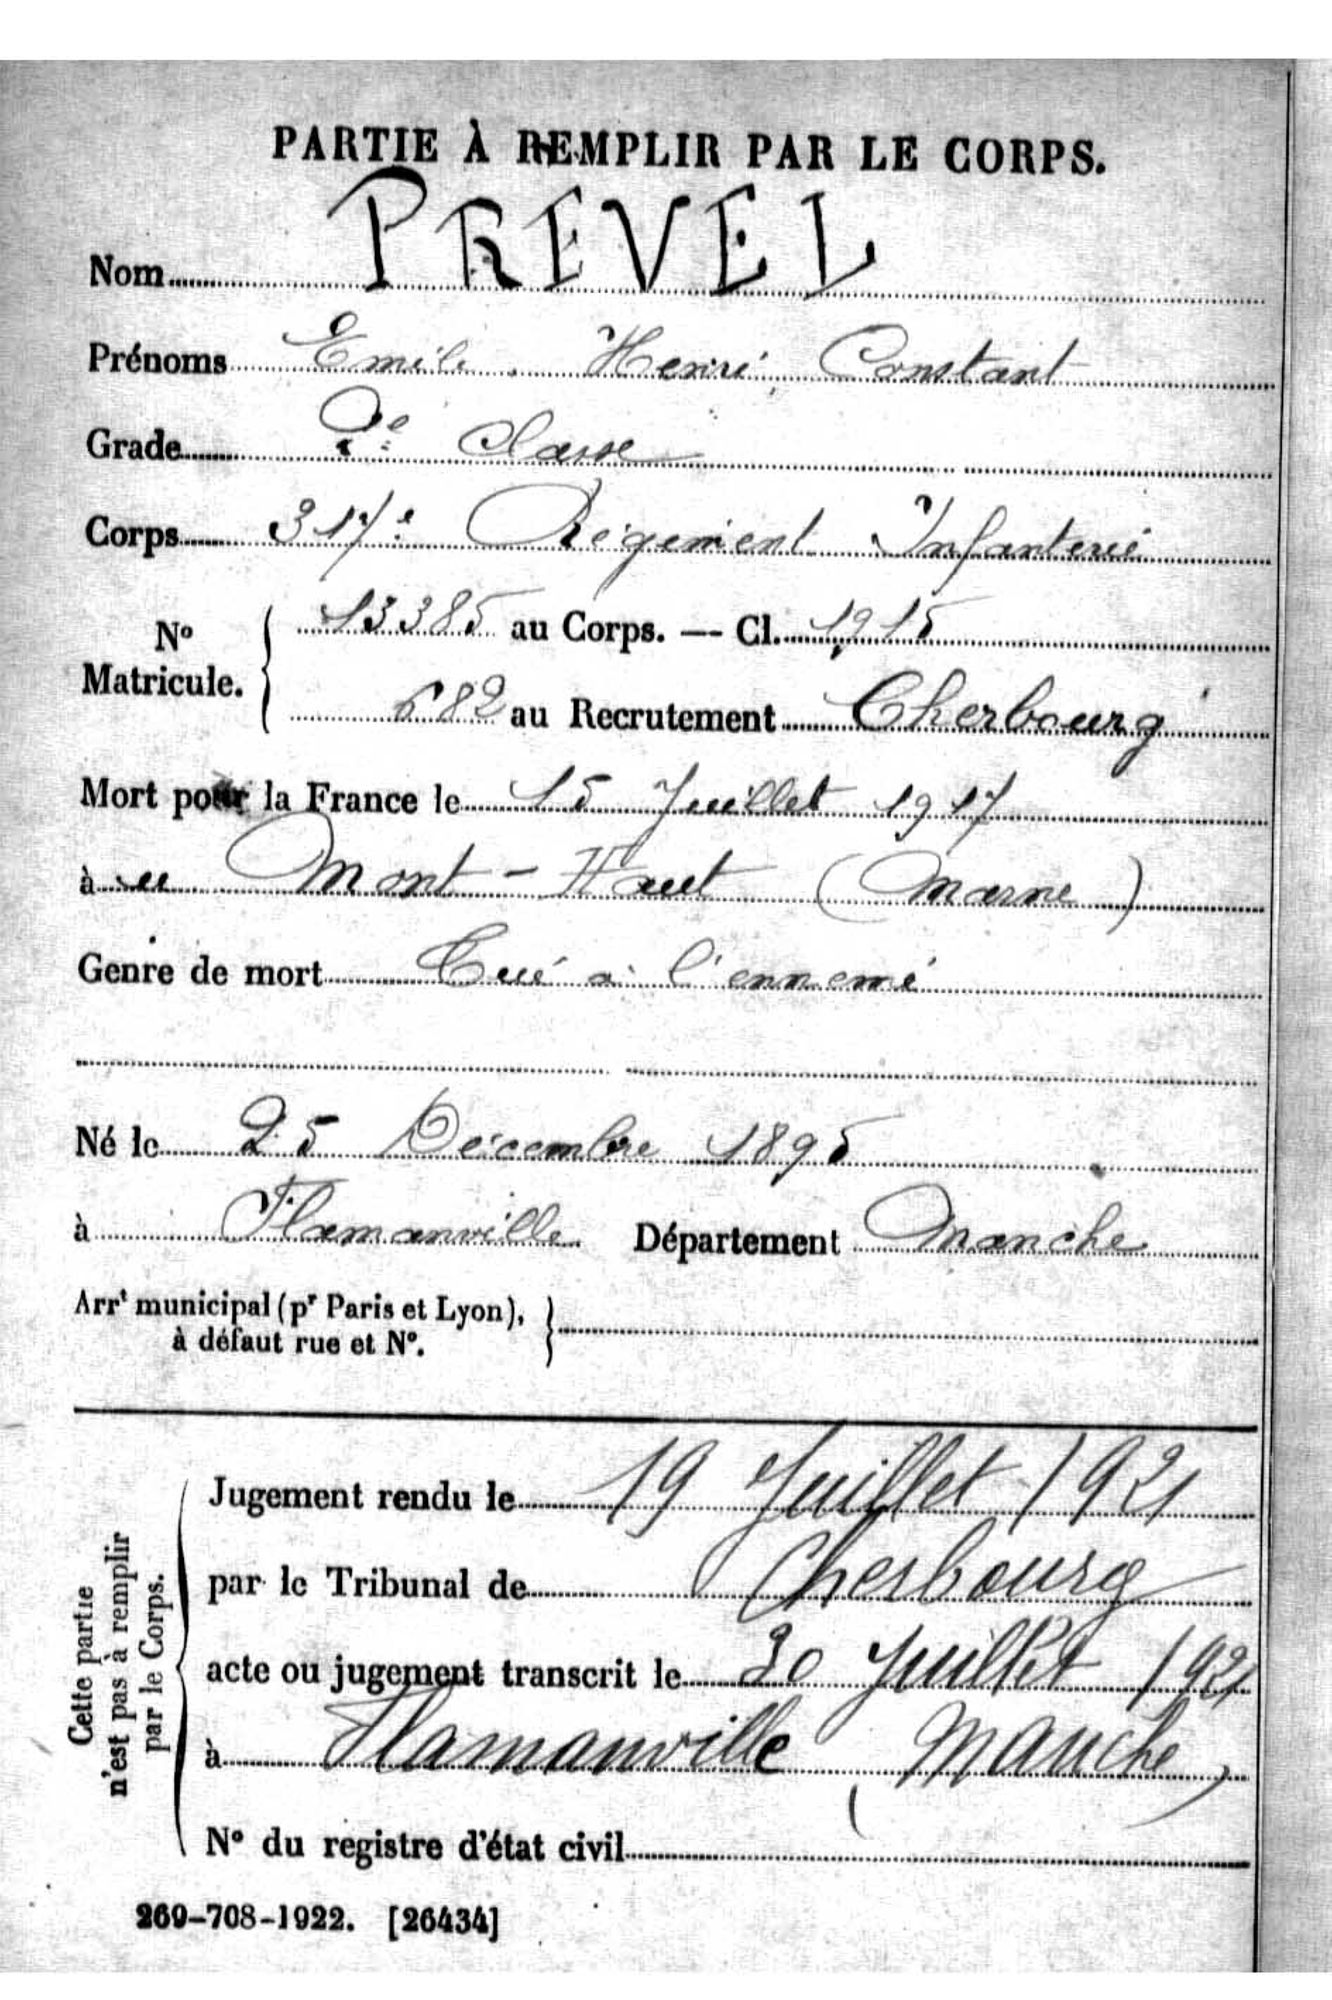 PARTIE À REMPLIR PAR LE CORPS.
Nom PREVEL
Prénoms Emile Henri Constant
Grade 2e Classe
Corps 317e Régiment Infanterie
No Matricule. { 13385 au Corps. — Cl. 1915
682 au Recrutement Cherbourg
Mort pour la France le 15 Juillet 1917
à au Mont-Haut (Marne)
Genre de mort Tué à l'ennemi
Né le 25 Décembre 1895
à Flamanville Département Manche
Arrt municipal (pr Paris et Lyon), }
à défaut rue et No.
Cette partie
n'est pas à remplir
par le Corps.
Jugement rendu le 19 Juillet 1921
par le Tribunal de Cherbourg
acte ou jugement transcrit le 30 Juillet 1921
à Flamanville (Manche)
No du registre d'état civil
269-708-1922. [26434]